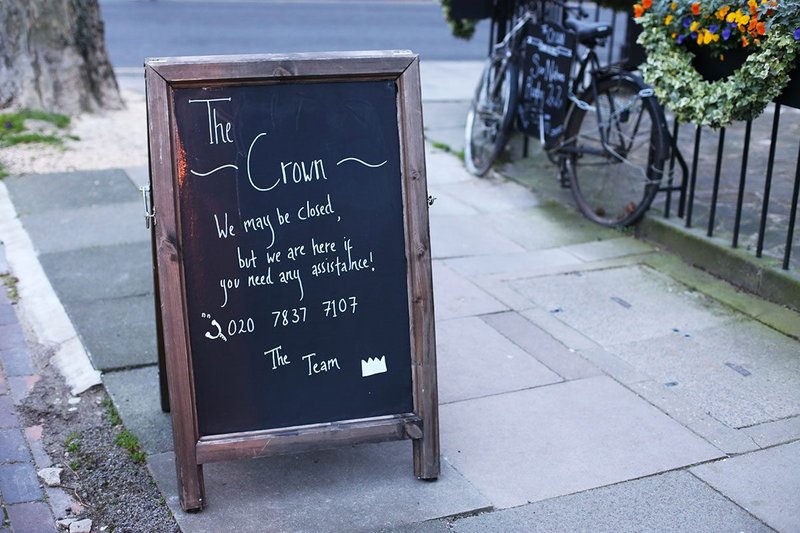 The
Crown
We may be closed,
but we are here if
you need any assistance!
020 7837 7107
The Team